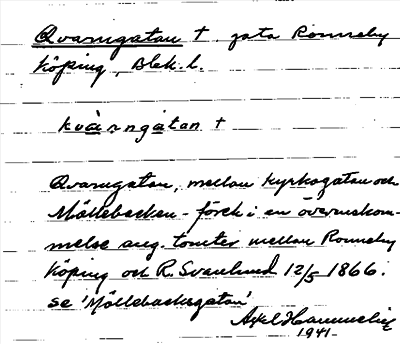 Qvarngatan †, gata Ronneby
köping, Blek. l.
kvàrngàtan †
Qvarngatan, mellan Kyrkogatan och
Möllebacken - förek. i en överenskom-
melse ang. tomter mellan Ronneby
köping och R. Svanlund 12/5 1866.
se 'Möllebacksgatan'
Axel Hammelin
1941.